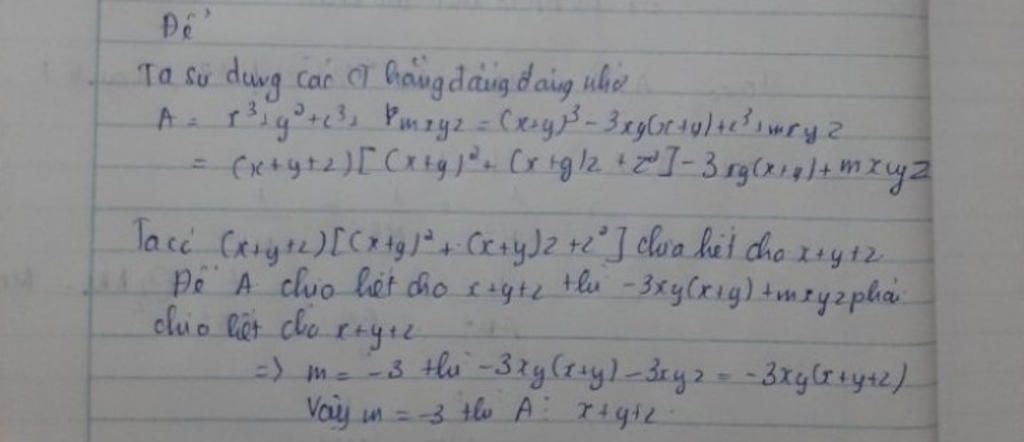 Để
Ta sử dụng các CT hằng đẳng đáng nhớ
A = x³+y³+z³+ mxyz = (x+y)³ - 3xy(x+y)+z³+mxyz
= (x+y+z)[(x+y)² + (x+y)z + z²] - 3xy(x+y) + mxyz
Ta có (x+y+z)[(x+y)² + (x+y)z + z²] chia hết cho x+y+z
Để A chia hết cho x+y+z thì -3xy(x+y) + mxyz phải
chia hết cho x+y+z
=> m = -3 thì -3xy(x+y) - 3xyz = -3xy(x+y+z)
Vậy m = -3 thì A ⋮ x+y+z.